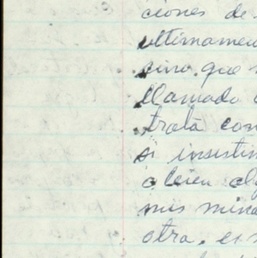 ciones de
ultimamen
que
llamado
trata con
si insistin
o bien al
mis mina
otra. es